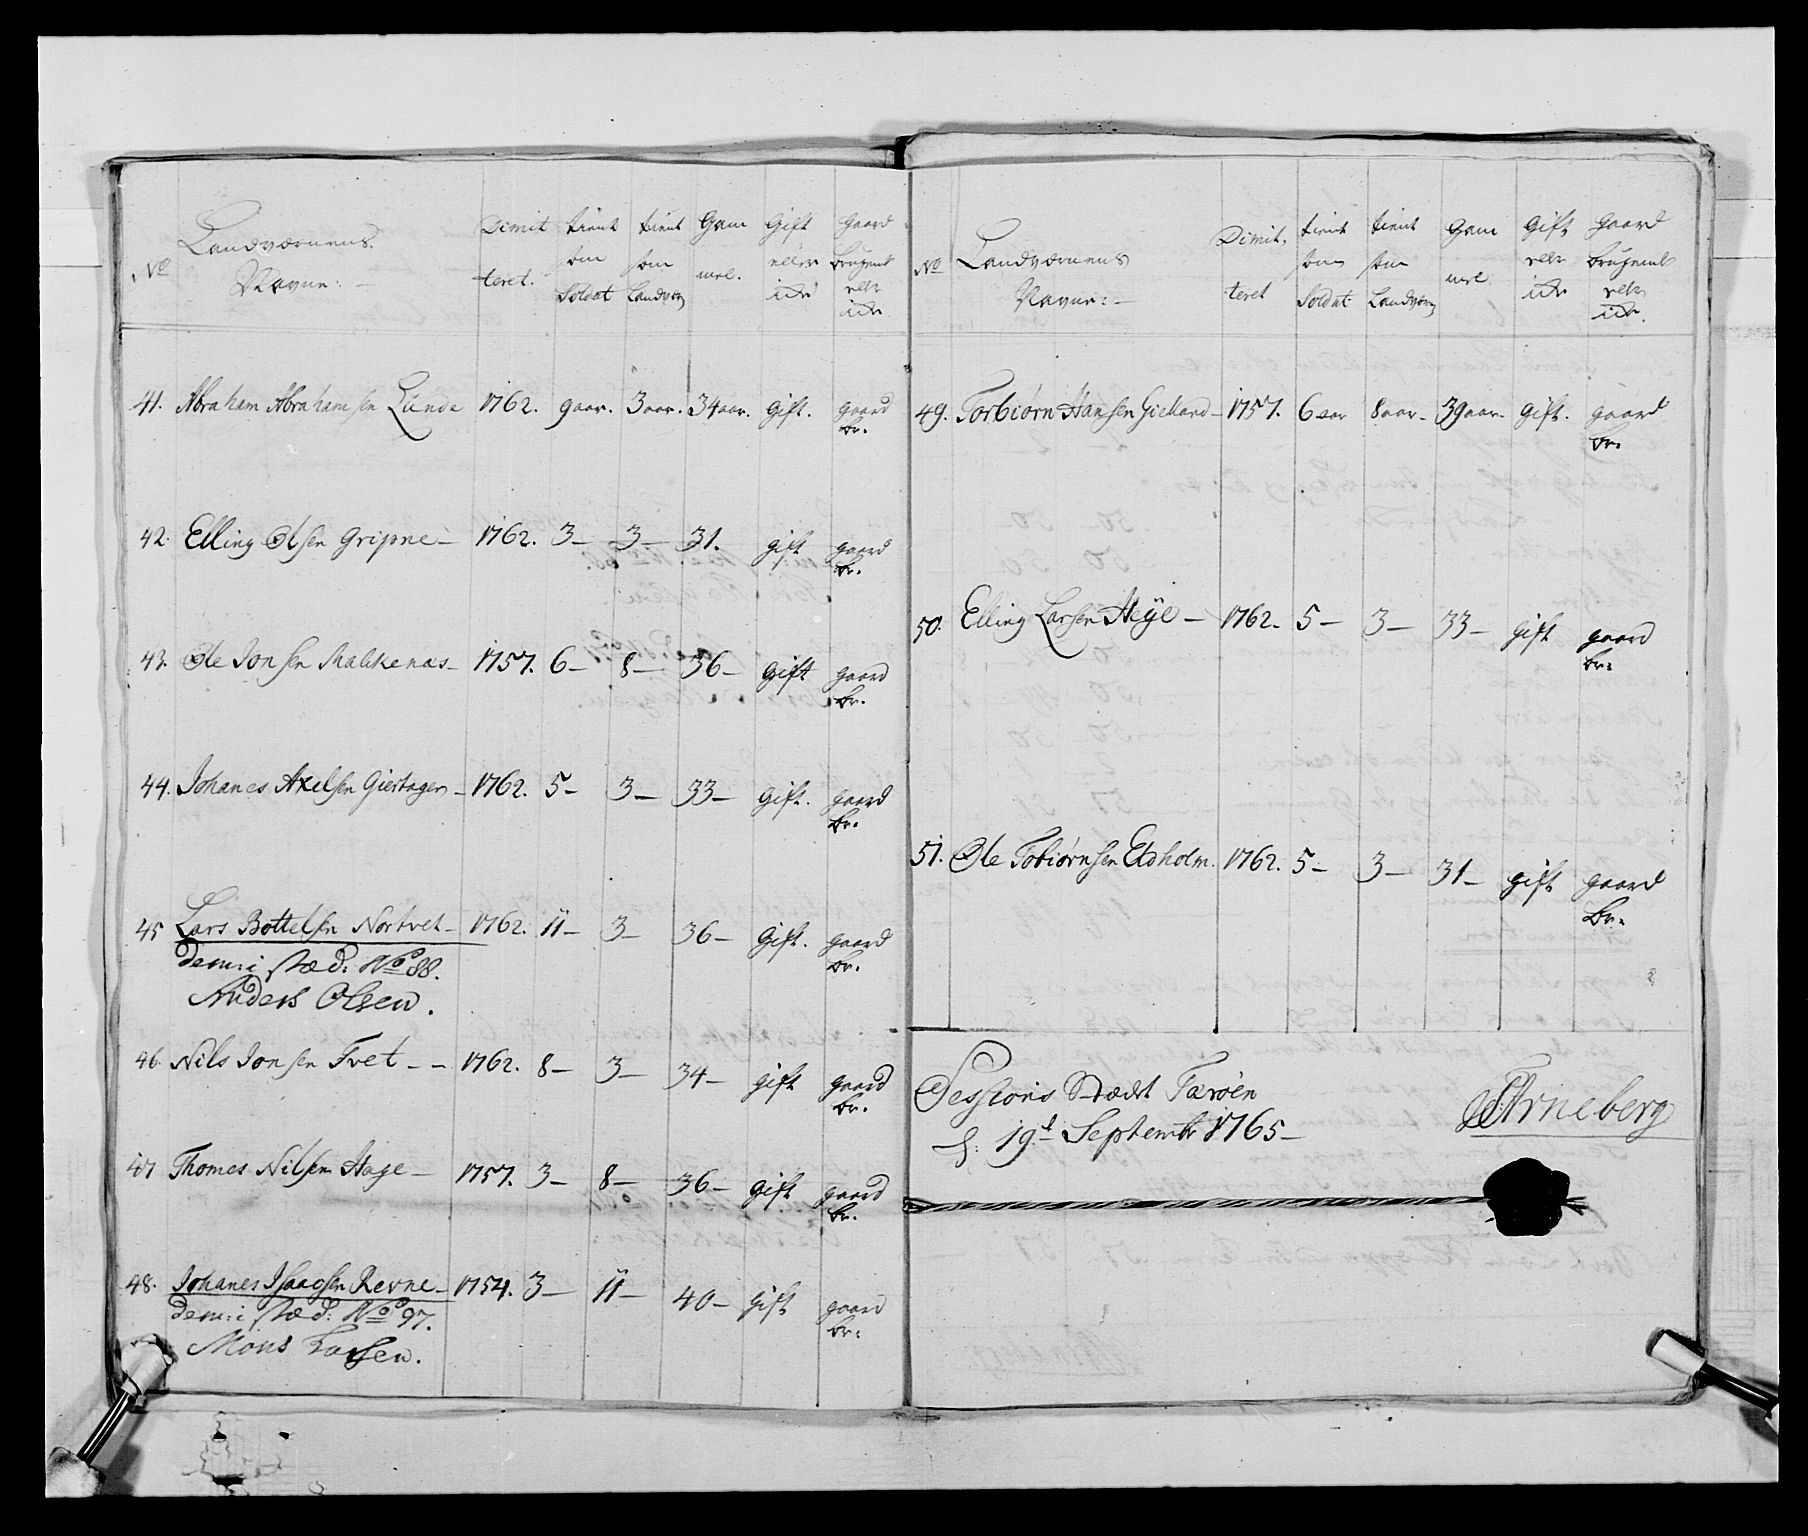 No Landværnens Navne:- Dimitteret. tient som Soldat tient som Landværn Gammel. Gift eller icke Gaard brugende eller icke
41. Abraham Abrahamsen Lunde 1762. 9 aar. 3 aar. 34 aar. gift. gaard br.
42. Elling Olsen Gripne- 1762. 3- 3- 31. gift gaard br.
43. Ole Jonsen Malkenæs- 1757. 6- 8- 36- gift gaard br.
44. Johanes Axelsen Giertager- 1762. 5- 3- 33- gift. gaard br.
45 Lars Bottelsen Nortvet- 1762. 11- 3- 36- Gift. gaard br.
dem: i stæd: No 88.
Anders Olsen.
46. Nils Jonsen Tvet-- 1762. 8- 3- 34- gift gaard br.
47 Thomes Nilsen Hage- 1757. 3- 8- 36- gift gaard br.
48. Johanes Isaacsen Revne- 1754. 3- 11- 40- gift gaard br:
dem: i stæd: No 97.
Mons Larsen.
No Landværnens Navne:- Dimitteret tient som Soldat tient som Landværn Gammel Gift eller icke Gaard brugende eller icke.
49. Torbiørn Hansen Giellard- 1757. 6 aar 8 aar- 39 aar. gift. gaard br.
50. Elling Larsen Heÿe- 1762. 5- 3- 33- gift gaard br:
51. Ole Tobiørnsen Eldholm. 1762. 5- 3- 31- gift gaard br.
Sessions Stædet Tærøen
d: 19d Septembr 1765-
Arneberg